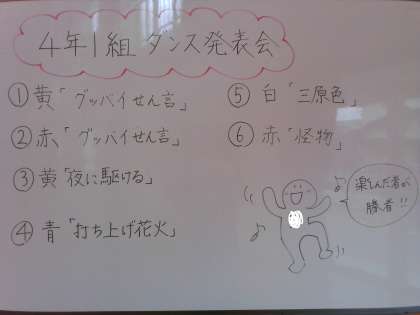 4年1組 ダンス発表会
①黄「グッバイせん言」
②赤「グッバイせん言」
③黄「夜に駆ける」
④青「打ち上げ花火」
⑤白「三原色」
⑥赤「怪物」
楽しんだ者が
勝者!!